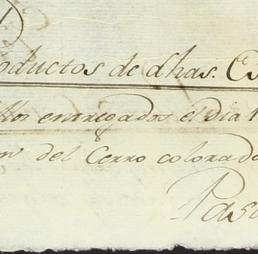 oductos de dhas. Cs
llos entregados el dia 1
del Cerro colorad
Pas